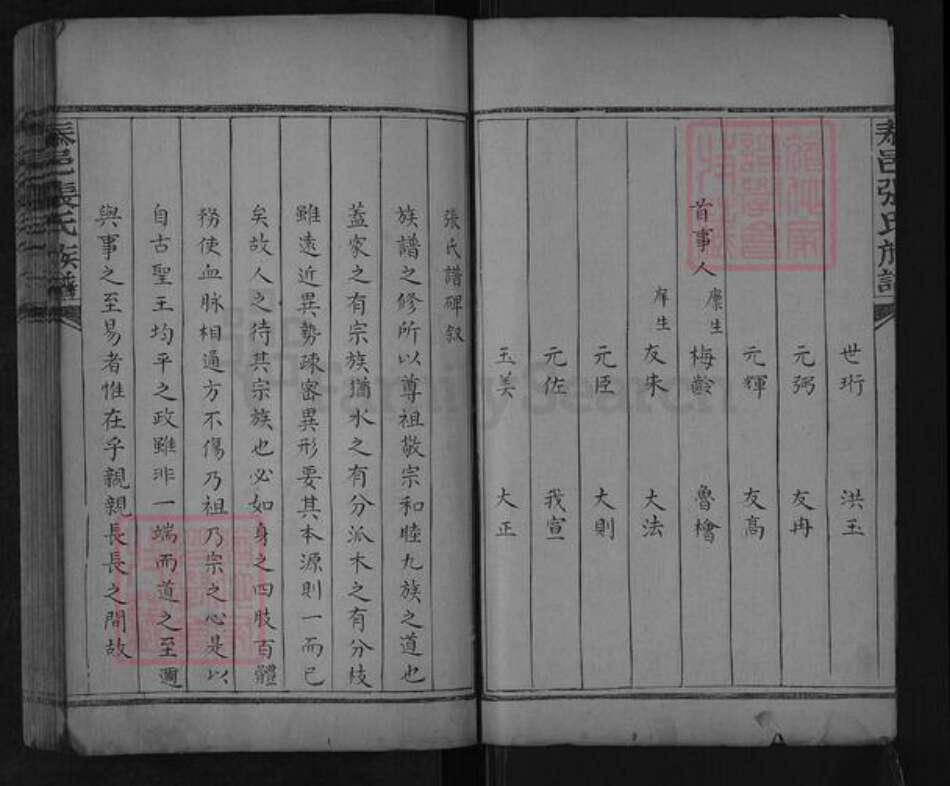 泰邑張氏族譜
世珩　洪玉
元弼　友冉
元輝　友高
首事人　廩生　梅齡　魯檜
庠生　友來　大法
元臣　大則
元佐　我宣
玉美　大正
張氏譜碑叙
族譜之修所以尊祖敬宗和睦九族之道也
蓋家之有宗族猶水之有分派木之有分枝
雖遠近異勢疎密異形要其本源則一而已
矣故人之待其宗族也必如身之四肢百體
務使血脉相通方不傷乃祖乃宗之心是以
自古聖王均平之政雖非一端而道之至邇
與事之至易者惟在乎親親長長之間故
泰邑張氏族譜
FamilySearch